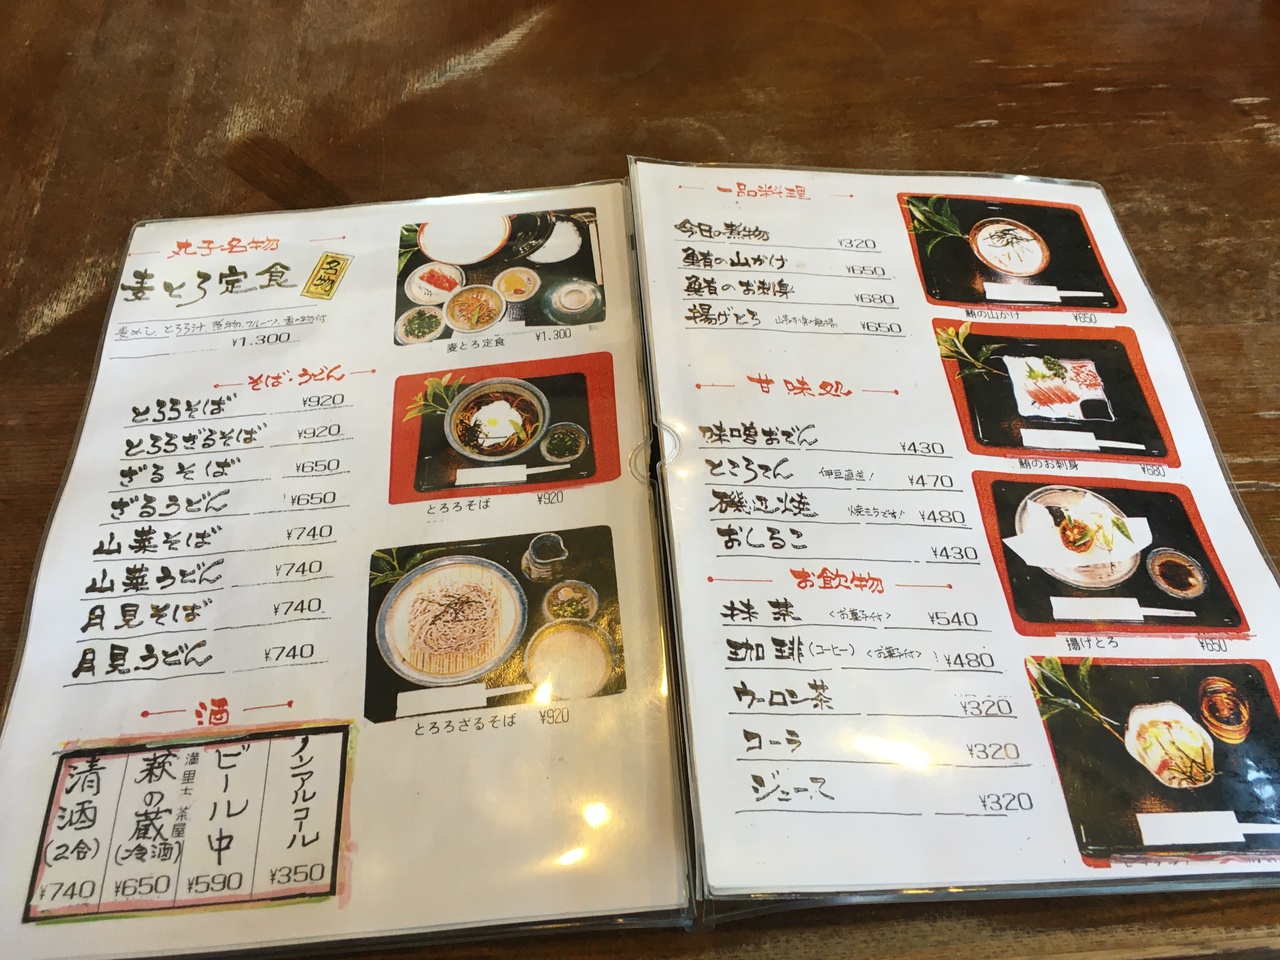 丸子名物
麦とろ定食
名物
麦めし、とろろ汁、煮物、フルーツ、香の物付
¥1.300
麦とろ定食 ¥1.300
そば・うどん
とろろそば ¥920
とろろざるそば ¥920
ざるそば ¥650
ざるうどん ¥650
山菜そば ¥740
山菜うどん ¥740
月見そば ¥740
月見うどん ¥740
とろろそば ¥920
とろろざるそば ¥920
酒
ノンアルコール ¥350
ビール中 ¥590
萩の蔵(冷酒) ¥650
清酒(2合) ¥740
一品料理
今日の煮物 ¥320
鮪の山かけ ¥650
鮪のお刺身 ¥680
揚げとろ ¥650
甘味処
味噌おでん ¥430
ところてん 伊豆直送! ¥470
磯辺焼 ¥480
おしるこ ¥430
お飲物
抹茶 <お菓子付> ¥540
珈琲(コーヒー) <お菓子付> ¥480
ウーロン茶 ¥320
コーラ ¥320
ジュース ¥320
鮪の山かけ ¥650
鮪のお刺身 ¥680
揚げとろ ¥650